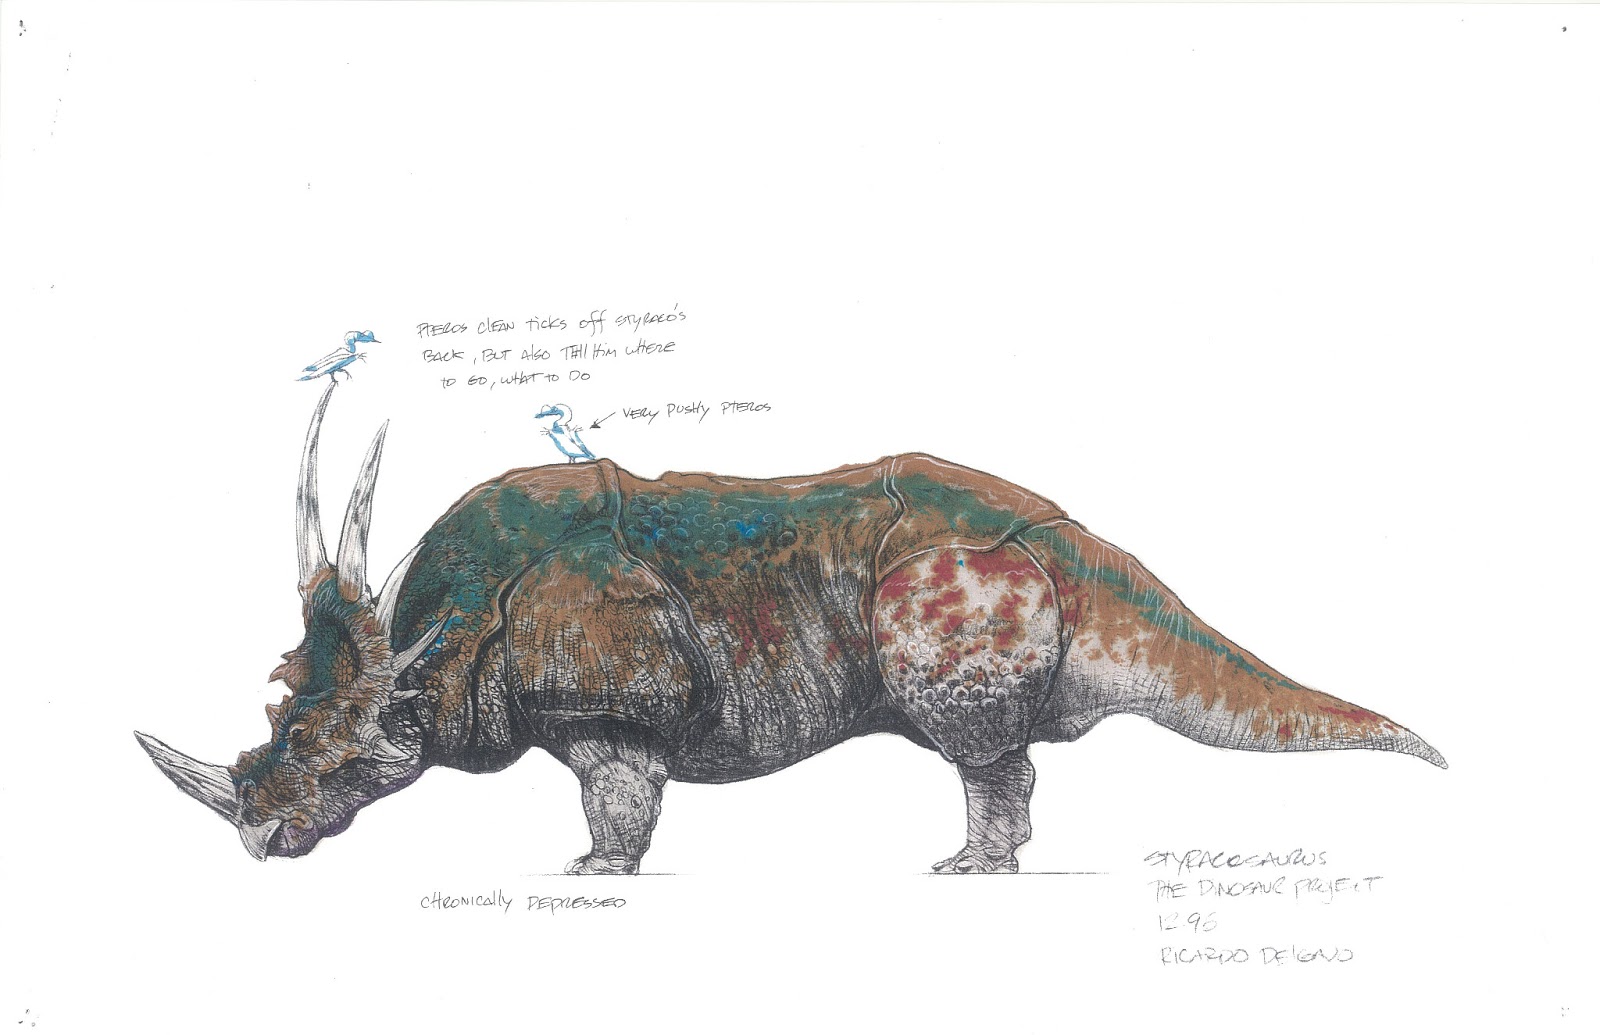 PTEROS CLEAN TICKS OFF STYRACO'S
BACK, BUT ALSO TELL HIM WHERE
TO GO, WHAT TO DO
VERY PUSHY PTEROS
CHRONICALLY DEPRESSED
STYRACOSAURUS
THE DINOSAUR PROJECT
12.96
RICARDO DELGADO